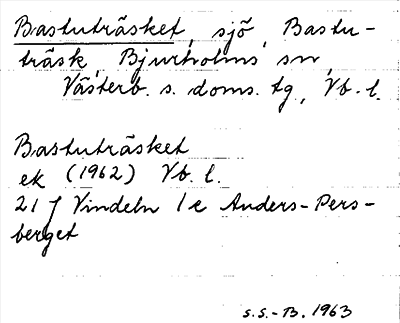 Bastuträsket, sjö, Bastu-
träsk, Bjurholms sn,
Västerb. s. doms. tg, Vb. l.
Bastuträsket
ek (1962) Vb. l.
21 f Vindeln 1 c Anders-Pers-
berget
S.S.-B. 1963